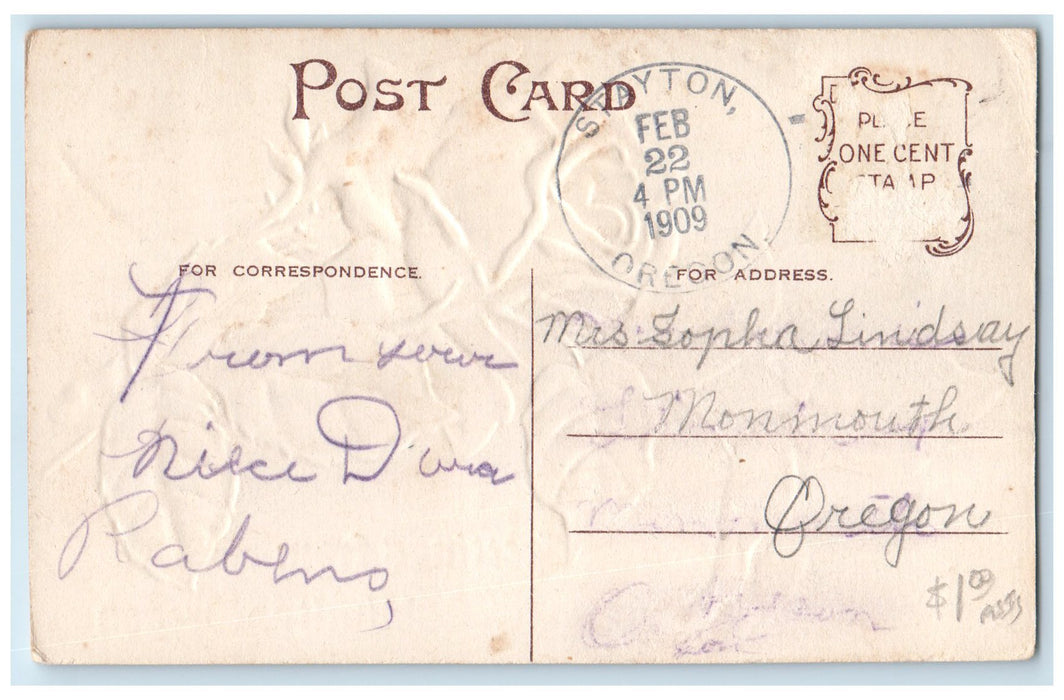 POST CARD
STAYTON,
FEB
22
4 PM
1909
OREGON.
PL CE
ONE CENT
STAMP
FOR CORRESPONDENCE.
From your
niece D
Rabens,
FOR ADDRESS.
Mrs Sopha Lindsay
Monmouth
Oregon
$1.00